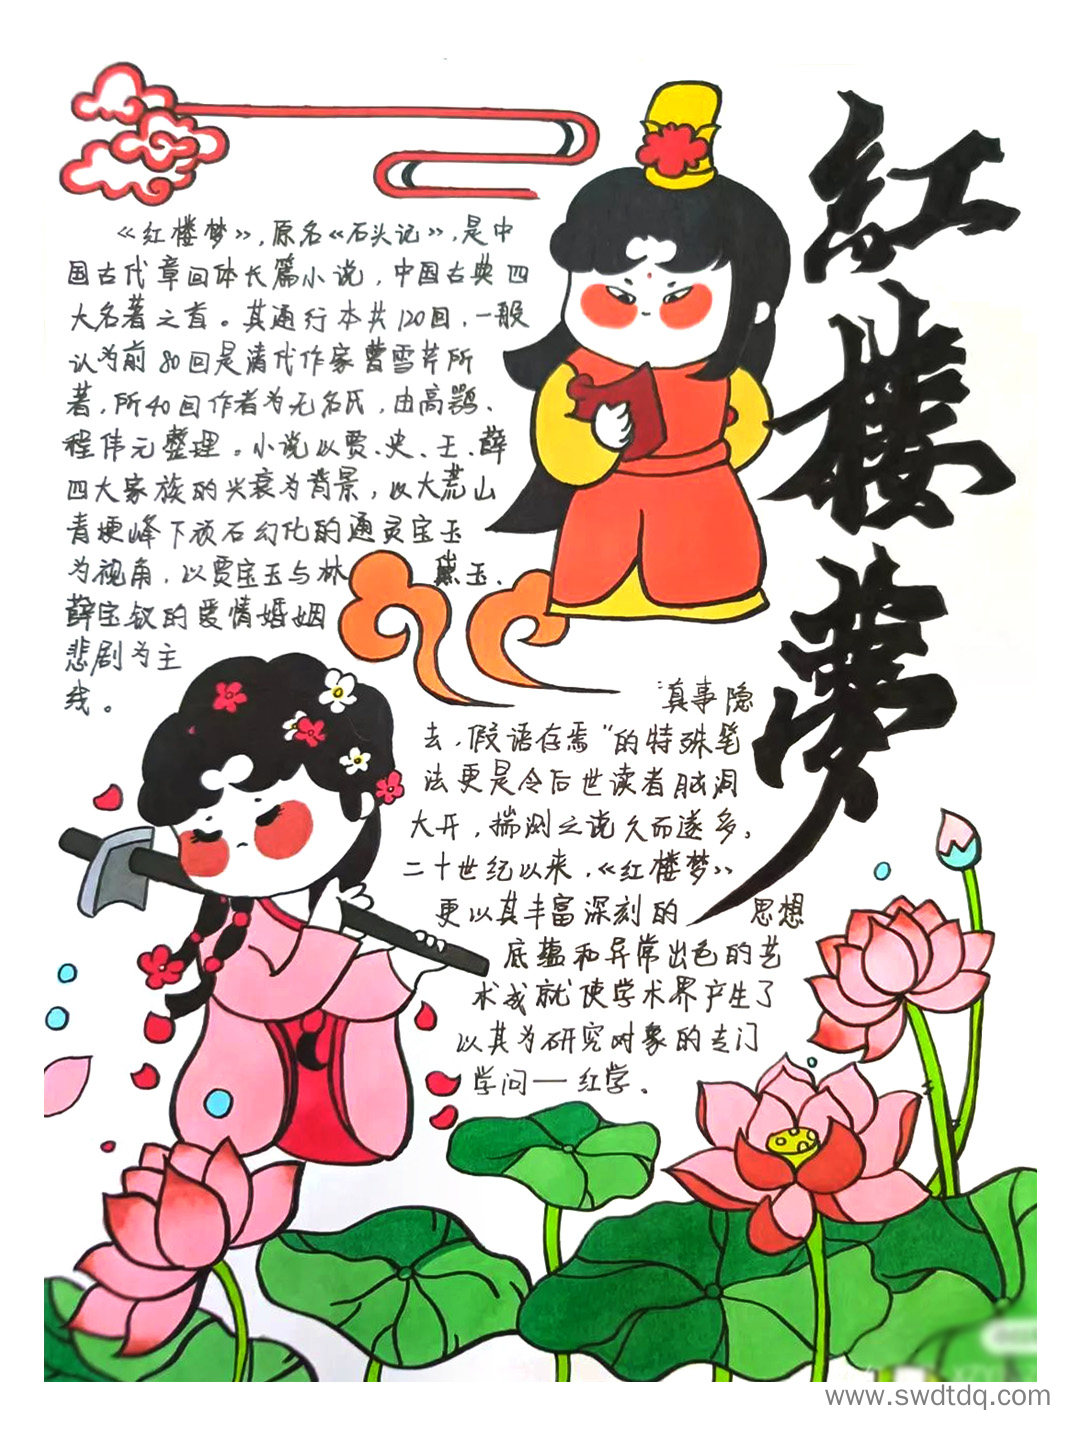 红楼梦
《红楼梦》,原名《石头记》,是中
国古代章回体长篇小说,中国古典四
大名著之首。其通行本共120回,一般
认为前80回是清代作家曹雪芹所
著,所40回作者为无名氏,由高鹗、
程伟元整理。小说以贾、史、王、薛
四大家族的兴衰为背景,以大荒山
青埂峰下顽石幻化的通灵宝玉
为视角,以贾宝玉与林黛玉、
薛宝钗的爱情婚姻
悲剧为主
线。
"真事隐
去,假语存焉"的特殊笔
法更是令后世读者脑洞
大开,揣测之说久而遂多,
二十世纪以来,《红楼梦》
更以其丰富深刻的思想
底蕴和异常出色的艺
术成就使学术界产生了
以其为研究对象的专门
学问—红学.
www.swdtdq.com